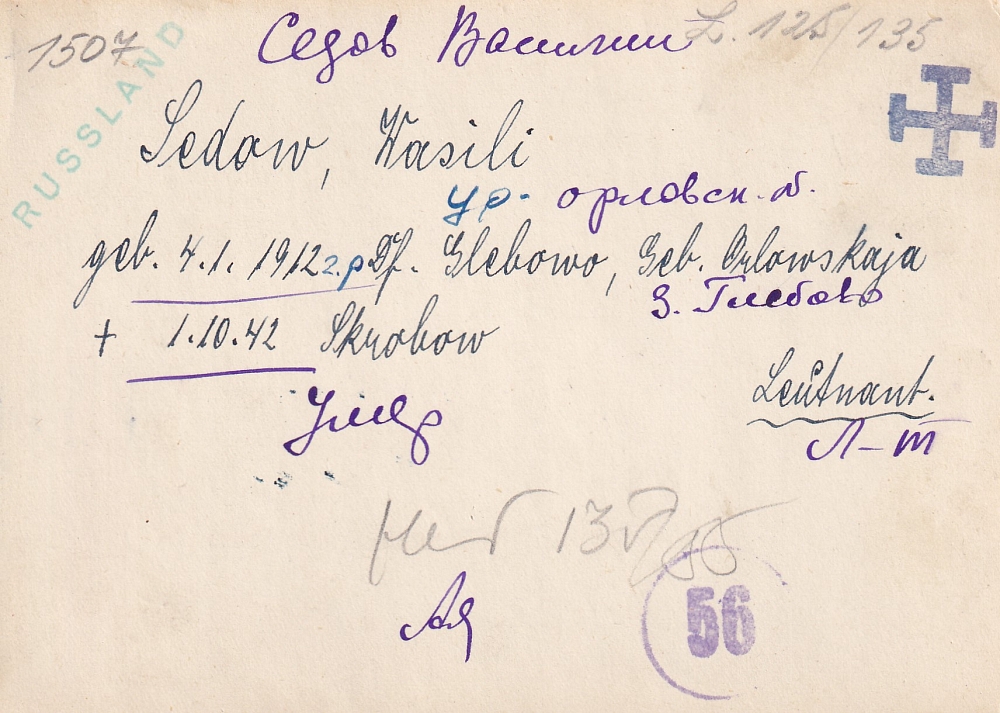 1507 Седов Василий L. 125/135
RUSSLAND
Sedow, Wasili
ур. орловск. о.
geb. 4.1.1912 г.р Df. Glebowo, Geb. Orlowskaja
з. Глебово
+ 1.10.42 Skrobow
Умер
Leutnant.
Л-т
56